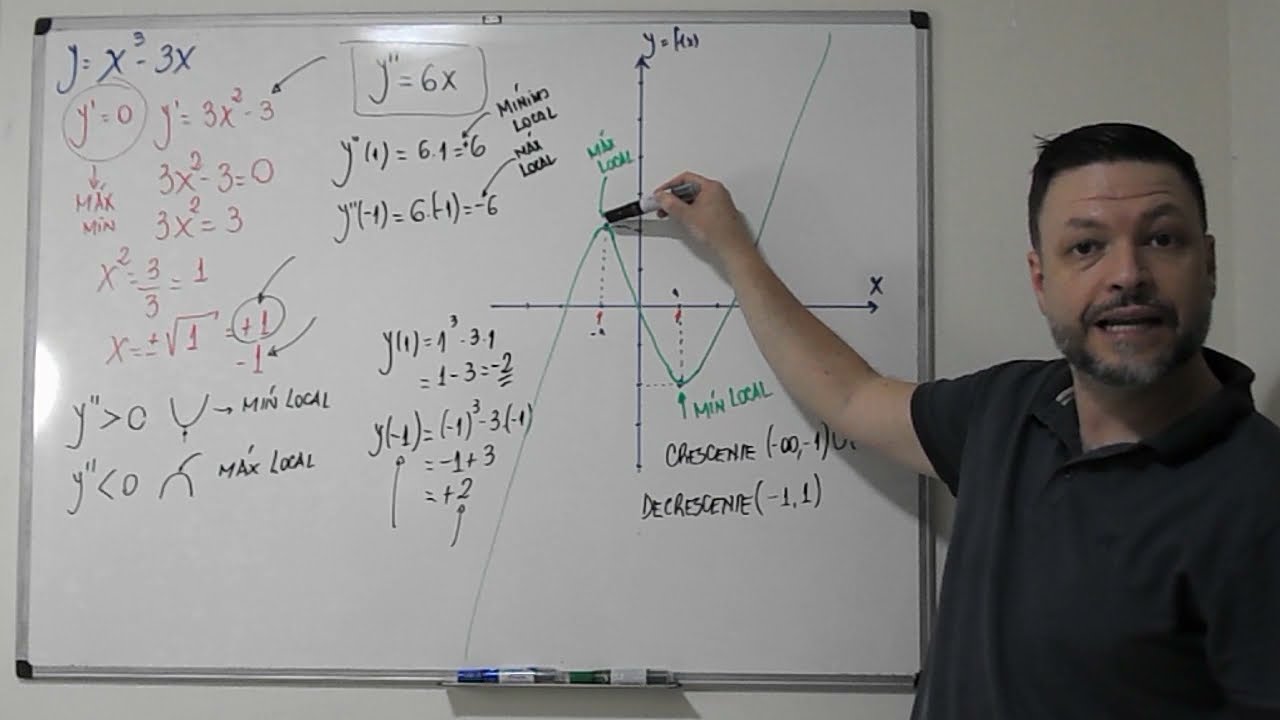 y = x³ - 3x
y' = 0
y' = 3x² - 3
MÁX
MÍN
3x² - 3 = 0
3x² = 3
x² = 3/3 = 1
x = ±√1 = +1
-1
y'' > 0 → MÍN LOCAL
y'' < 0 MÁX LOCAL
y'' = 6x
y''(1) = 6.1 = +6
MÍNIMO
LOCAL
y''(-1) = 6.(-1) = -6
MÁX
LOCAL
y(1) = 1³ - 3.1
= 1 - 3 = -2
y(-1) = (-1)³ - 3.(-1)
= -1 + 3
= +2
y = f(x)
MÁX
LOCAL
X
-1
1
MÍN LOCAL
CRESCENTE (-∞, -1) ∪
DECRESCENTE (-1, 1)